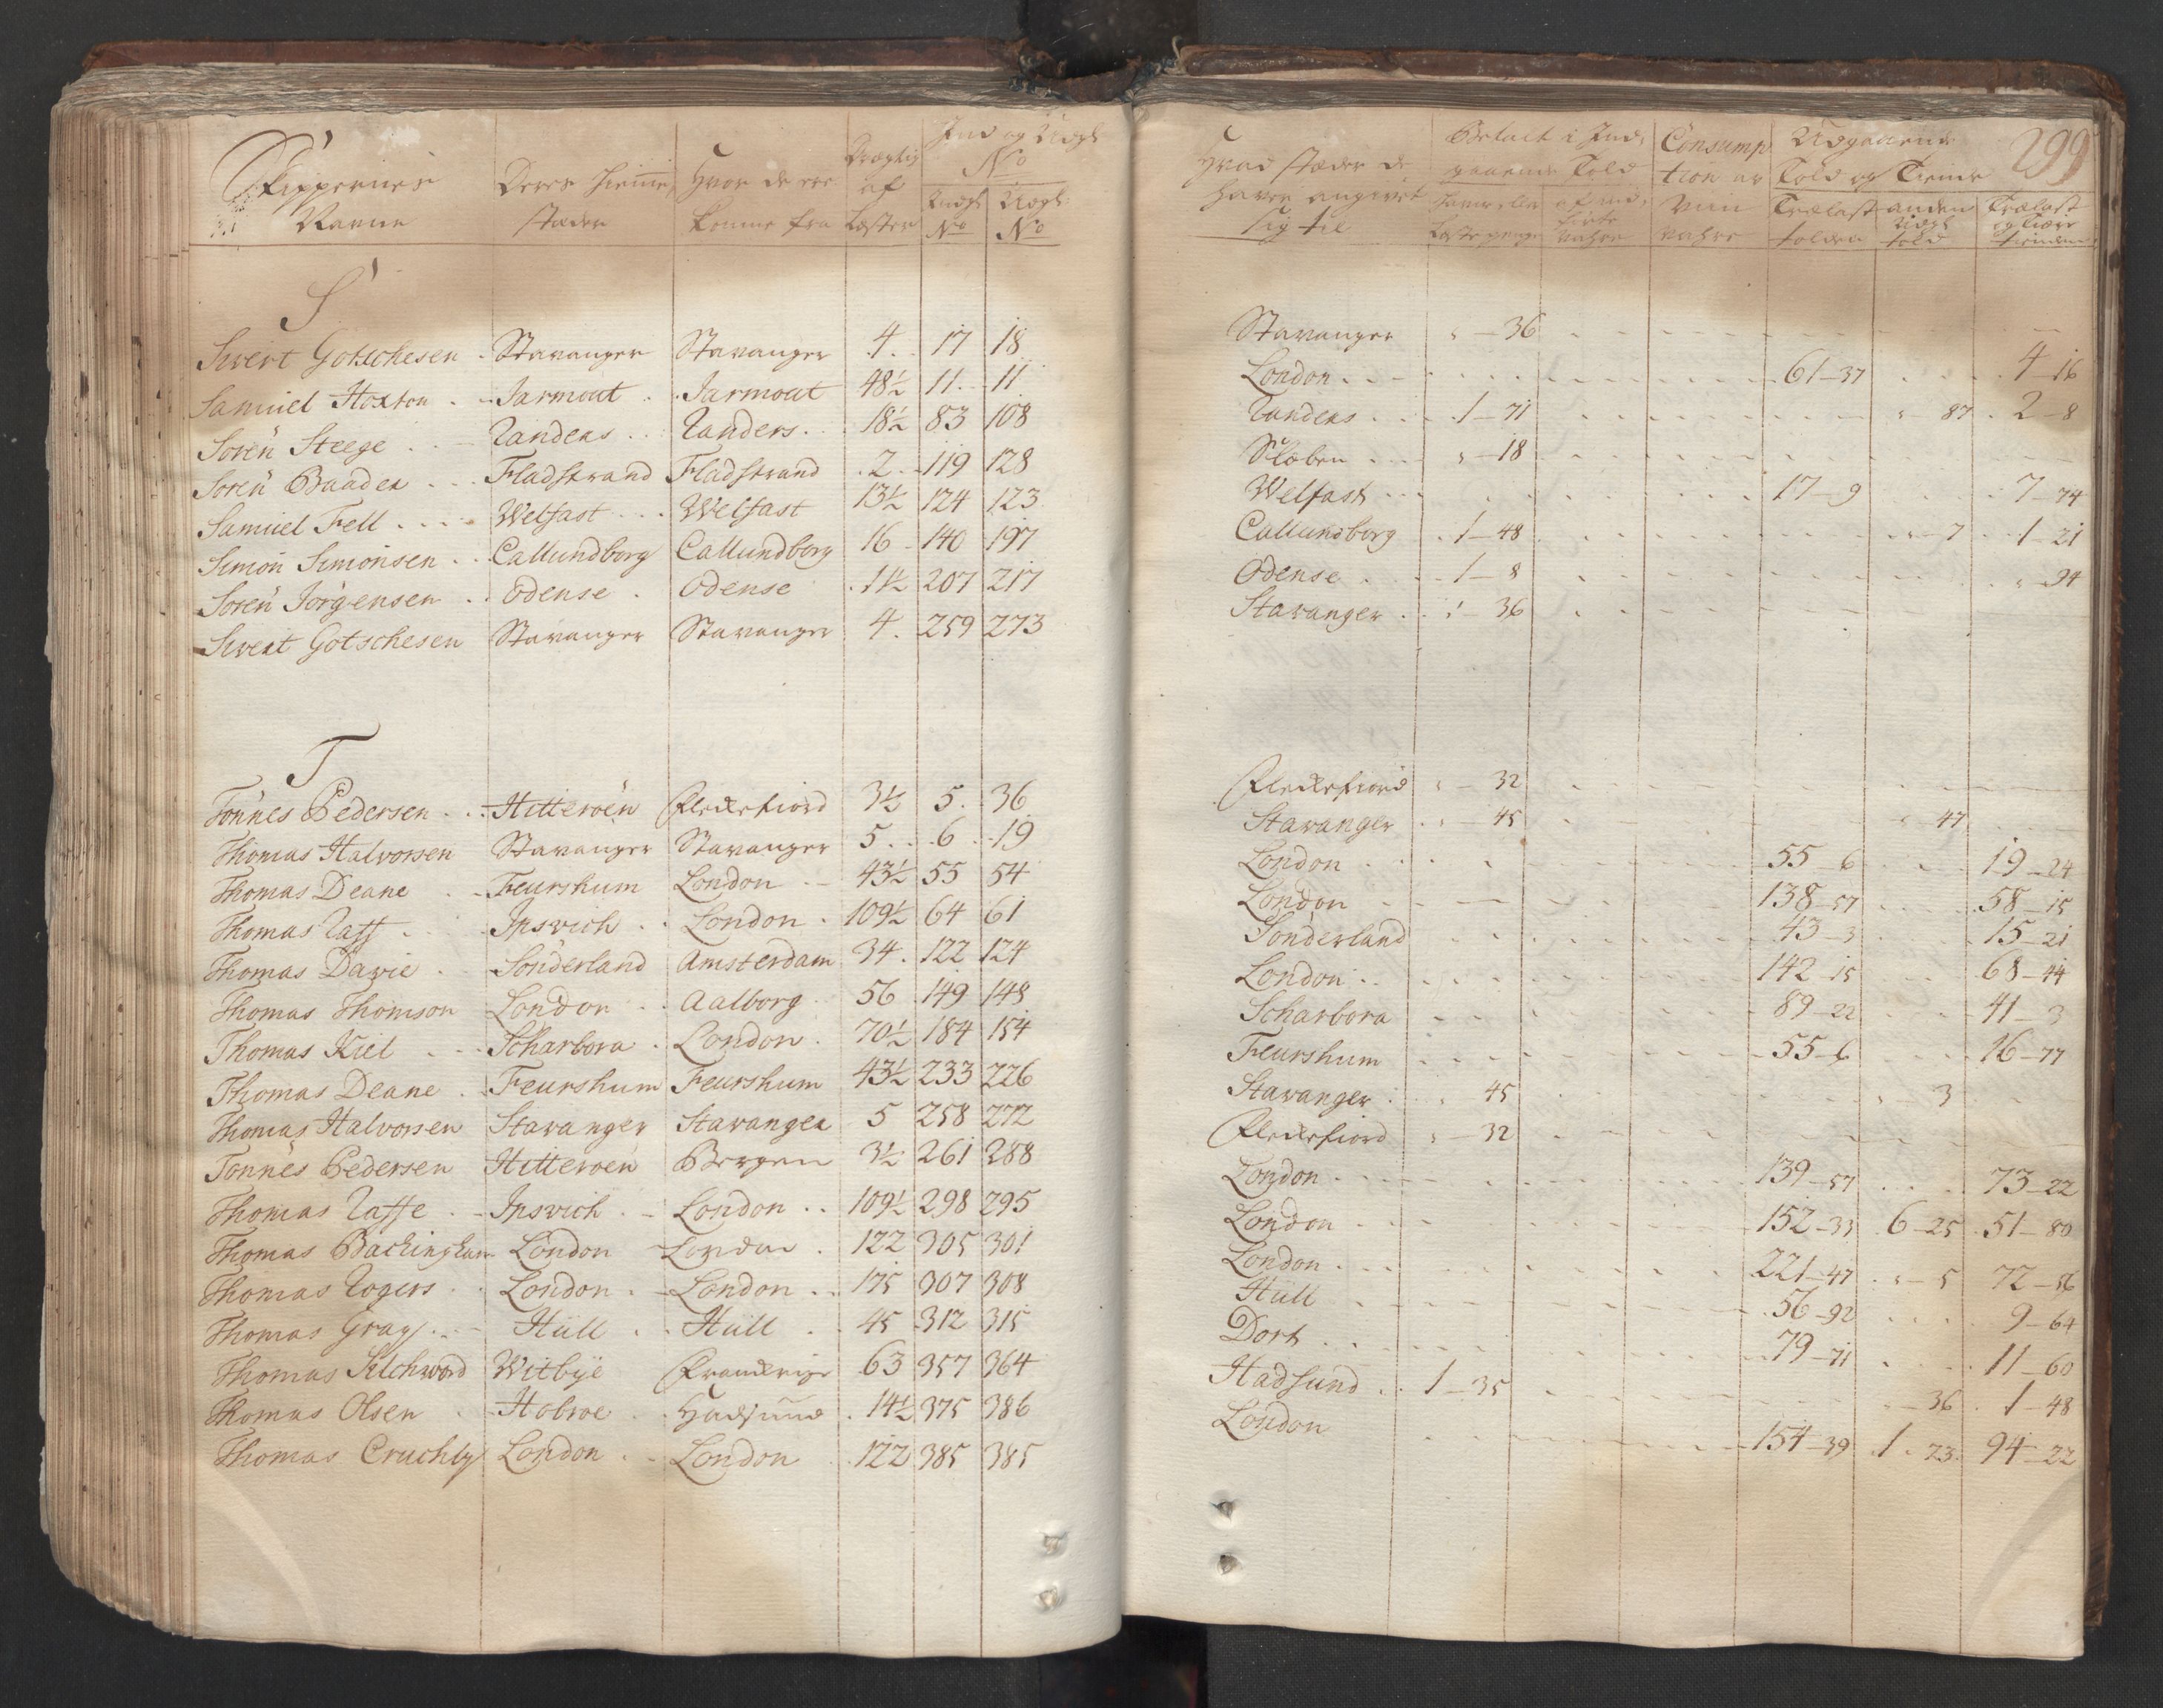 Skippernes Navne | Deres Hiemme stæder | Hvor de ere komne fra | Drægtig af Læster | Ind og Udgl No
Indgl No | Udgl No
S
Sivert Gotschesen . Stavanger Stavanger 4 . 17 18
Samuel Hoxton . Jarmout . Jarmout 48½ 11 . 11
Sören Steege . . Randers . . Randers . 18½ 83 108
Sören Baader . . . Fladstrand Fladstrand . 2 . 119 128
Samuel Fell . . . . Welfast . . . Welfast 13½ 124 123
Simon Simonsen . . Callundborg Callundborg 16 . 140 197
Sören Jörgensen . . Odense . Odense . 11½ 207 217
Sivert Gotschesen Stavanger Stavanger 4 . 259 273
T
Tönnes Pedersen . . . Hitteröen Fleckefiord 3½ 5 . 36
Thomas Halvorsen Stavanger Stavanger 5 . . 6 . 19
Thomas Deane . . Feurshum London . 43½ 55 54
Thomas Raff . . . Ipsvich . . London . 109½ 64 61
Thomas Davie . Sönderland Amsterdam 34 . 122 124
Thomas Thomson London . . Aalborg . 56 . 149 148
Thomas Kiel . . . Scharbora . London . 70½ 184 154
Thomas Deane . Feurshum Feurshum 43½ 233 226
Thomas Halvorsen Stavanger Stavanger 5 258 272
Tönnes Pedersen Hitteröen Bergen 3½ 261 288
Thomas Raffe . . Ipsvich . . London . . 109½ 298 295
Thomas Backingham London London . 122 305 301
Thomas Rogers . . London . London . . 175 307 308
Thomas Gray . . . Hull . . Hull . . 45 312 315
Thomas Silchword Witbye Franckrige 63 357 364
Thomas Olsen . Hobroe . . Hadsund . 14½ 375 386
Thomas Cruchly London . . London . 122 385 385
299
Hvad stæder de have angivet sig til | Betalt i Indgaaende Told | Consumption av Viin Vahre | Udgaaende Told og Tiende
Trælast tolden | anden Udgl told | Trælast og Tiære tienden
Stavanger " — 36
London . . . 61 — 37 4 — 16
Randers . . . 1 — 71 " 87 . 2 — 8
Sleben . . . " — 18
Welfast . . . 17 — 9 7 — 74
Callundborg . 1 — 48 " 7 . 1 — 21
Odense . . . 1 — 8 " 94
Stavanger . . " — 36
Fleckefiord " — 32
Stavanger . " — 45 " 47
London . . . 55 — 6 19 — 24
London . . 138 — 57 58 — 15
Sönderland . . 43 — 3 15 — 21
London . . 142 — 15 68 — 44
Scharbora . . 89 — 22 41 — 3
Feurshum . . 55 — 6 16 — 77
Stavanger . " 45 " 3
Fleckefiord " — 32
London . . . 139 — 57 73 — 22
London . . 152 — 33 6 — 25 51 — 80
London . . . 221 — 47 " — 5 72 — 86
Hull . . 56 — 92 9 — 64
Dort . . . 79 — 71 11 — 60
Hadsund . . 1 — 35 " 36 . 1 — 48
London 154 — 39 1 . 23 94 — 22